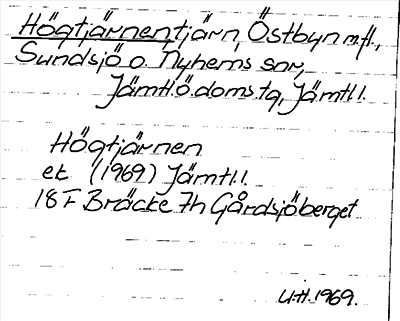 Högtjärnen, tjärn, Östbyn m.fl.,
Sundsjö o. Nyhems snr,
Jämtl.ö.doms.tg, Jämtl.l.
Högtjärnen
ek (1969) Jämtl.l.
18 F Bräcke 7h Gårdsjöberget
U.H. 1969.